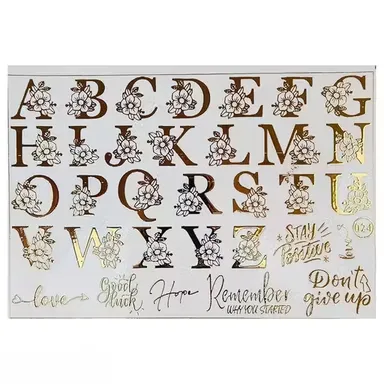 A B C D E F G
H I J K L M N
O P Q R S T U
V W X Y Z
STAY
Positive
love
Good
luck
Hope
Remember
WHY YOU STARTED
Don't
give up